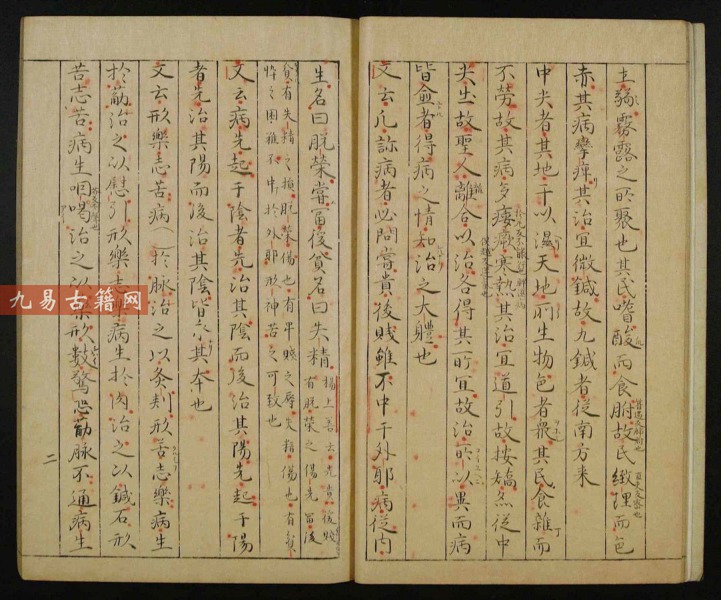 土弱霧露之所聚也其民嗜酸而食胕故民緻理而色
赤其病攣痺其治宜微鍼故九鍼者從南方来
中央者其地平以濕天地所生物色者衆其民食雜而
不勞故其病多痿厥寒熱其治宜道引故按蹻亦從中
央出故聖人離合以治各得其所宜故治所以異而病
皆愈者得病之情知治之大體也
又云凡診病者必問嘗貴後賤雖不中于外邪病從内
生名曰脱榮嘗冨後貧名曰失精
楊上善云先貴後賤
有脱榮之傷先冨後
貧有失精之損脱榮傷也有卑賤之辱失精傷也有貧
悴之困雖不中於外邪形神苦之可致也
又云病先起于陰者先治其陰而後治其陽先起于陽
者先治其陽而後治其陰皆㕥其本也
又云形樂志苦病生於脉治之以灸刾形苦志樂病生
於筋治之以慰引形樂志樂病生於肉治之以鍼石形
苦志苦病生咽喝治之以藥形數驚恐筋脉不通病生
二
九易古籍网